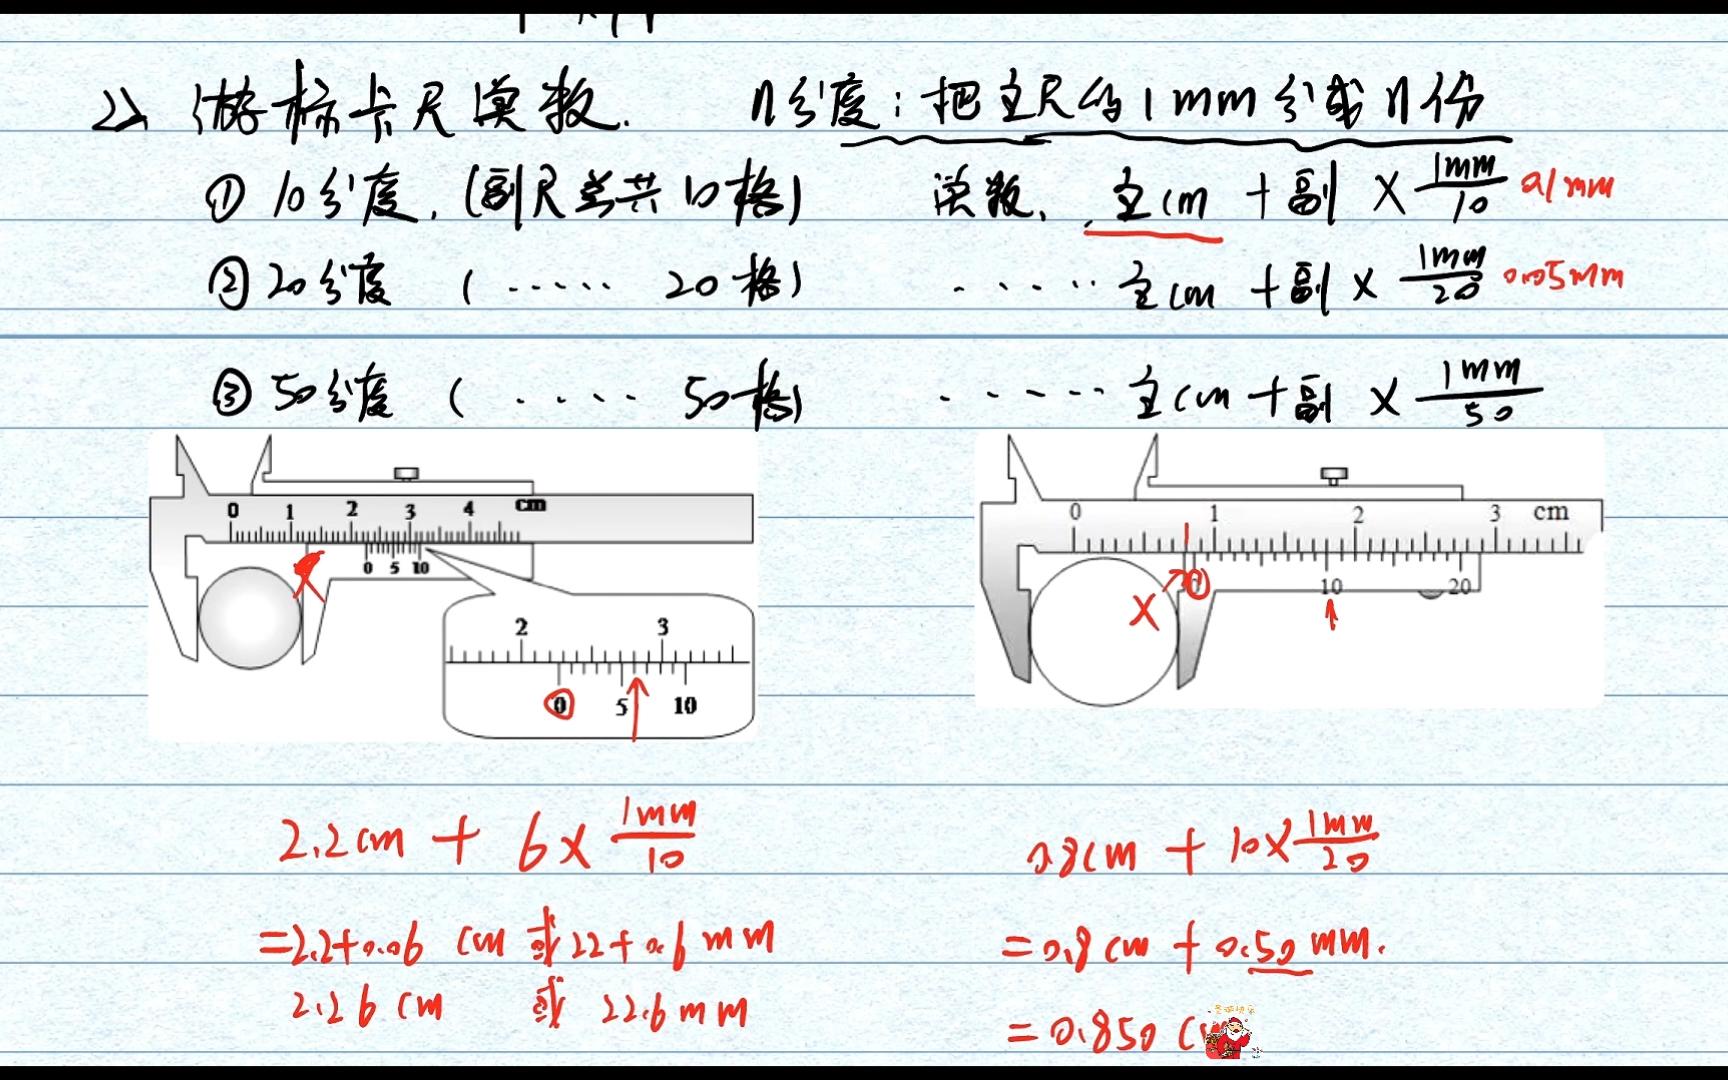 2> 游标卡尺读数. n分度：把主尺的1mm分成n份
① 10分度. (副尺总共10格) 读数. 主cm + 副 × 1mm/10 0.1mm
② 20分度 ( ..... 20格) ...... 主cm + 副 × 1mm/20 0.05mm
③ 50分度 ( ..... 50格) ...... 主cm + 副 × 1mm/50
0 1 2 3 4 cm
0 5 10
2 3
0 5 10
0 1 2 3 cm
0 10 20
2.2cm + 6× 1mm/10
=2.2+0.06 cm 或 22+0.6mm
2.26cm 或 22.6mm
0.8cm + 10× 1mm/20
=0.8cm + 0.50mm.
=0.850